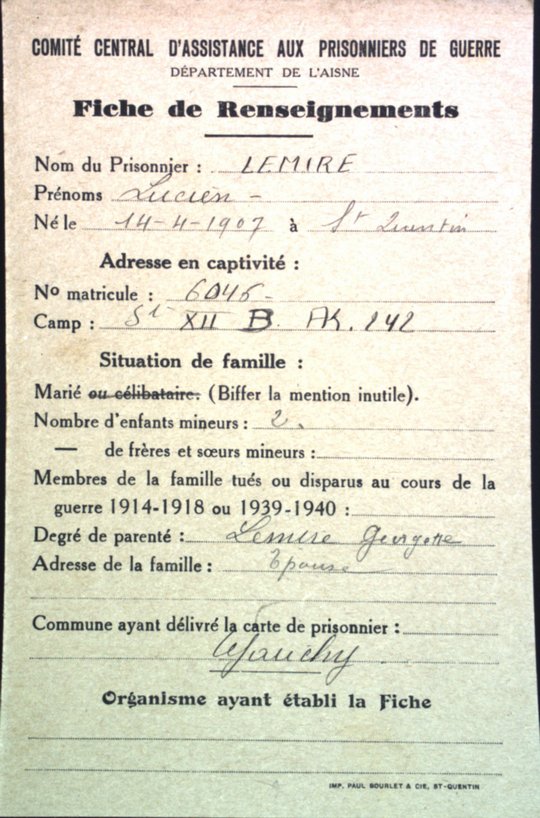 COMITÉ CENTRAL D'ASSISTANCE AUX PRISONNIERS DE GUERRE
DÉPARTEMENT DE L'AISNE
Fiche de Renseignements
Nom du Prisonnier : LEMIRE
Prénoms Lucien -
Né le 14-4-1907 à St Quentin
Adresse en captivité :
No matricule : 6046 -
Camp : St XII B. AK. 242
Situation de famille :
Marié ou célibataire. (Biffer la mention inutile).
Nombre d'enfants mineurs : 2.
— de frères et sœurs mineurs :
Membres de la famille tués ou disparus au cours de la
guerre 1914-1918 ou 1939-1940 :
Degré de parenté : Lemire Georgette
Adresse de la famille : Epouse
Commune ayant délivré la carte de prisonnier :
Gauchy
Organisme ayant établi la Fiche
IMP. PAUL BOURLET & CIE, ST-QUENTIN